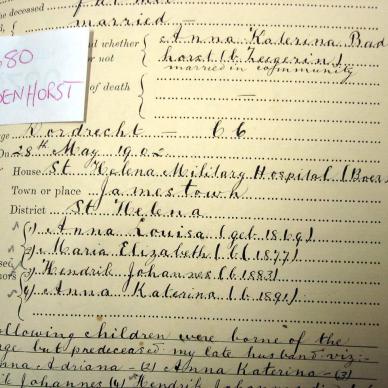 he deceased
married —
680
DENHORST
nd whether { Anna Katerina Bad
r not horst (b. Regering)
married in community
of death { —
ge Dordrecht — 66
On 28th May 1902
House St Helena Military Hospital (Boer
Town or place Jamestown
District St Helena
(1) Anna Louisa (geb 1869)
2) Maria Elizabeth (b. 1877)
3) Hendrik Johannes (b 1883)
4) Anna Katerina (b. 1891)
ollowing children were borne of the
ge but predeceased my late husband viz:—
nna Adriana — (2) Anna Katerina — (3)
Johannes (4) Hendrik Johannes